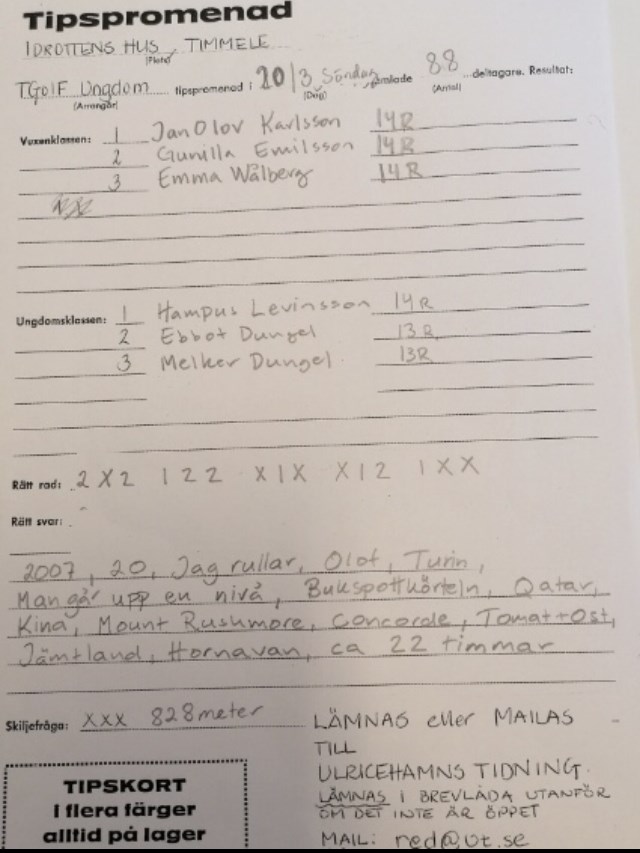 Tipspromenad
IDROTTENS HUS, TIMMELE
(Plats)
TGoIF Ungdom tipspromenad i 20/3 Söndag samlade 88 deltagare. Resultat:
(Arrangör) (Dag) (Antal)
Vuxenklassen: 1 Jan Olov Karlsson 14R
2 Gunilla Emilsson 14R
3 Emma Wålberg 14R
Ungdomsklassen: 1 Hampus Levinsson 14R
2 Ebbot Dungel 13R
3 Melker Dungel 13R
Rätt rad: 2X2 122 X1X X12 1XX
Rätt svar:
2007, 20, Jag rullar, Olof, Turin,
Man går upp en nivå, Bukspottkörteln, Qatar,
Kina, Mount Rushmore, Concorde, Tomat+Ost,
Jämtland, Hornavan, ca 22 timmar
Skiljefråga: XXX 828meter
LÄMNAS eller MAILAS
TILL
ULRICEHAMNS TIDNING.
LÄMNAS I BREVLÅDA UTANFÖR
OM DET INTE ÄR ÖPPET
MAIL: red@ut.se
TIPSKORT
I flera färger
alltid på lager